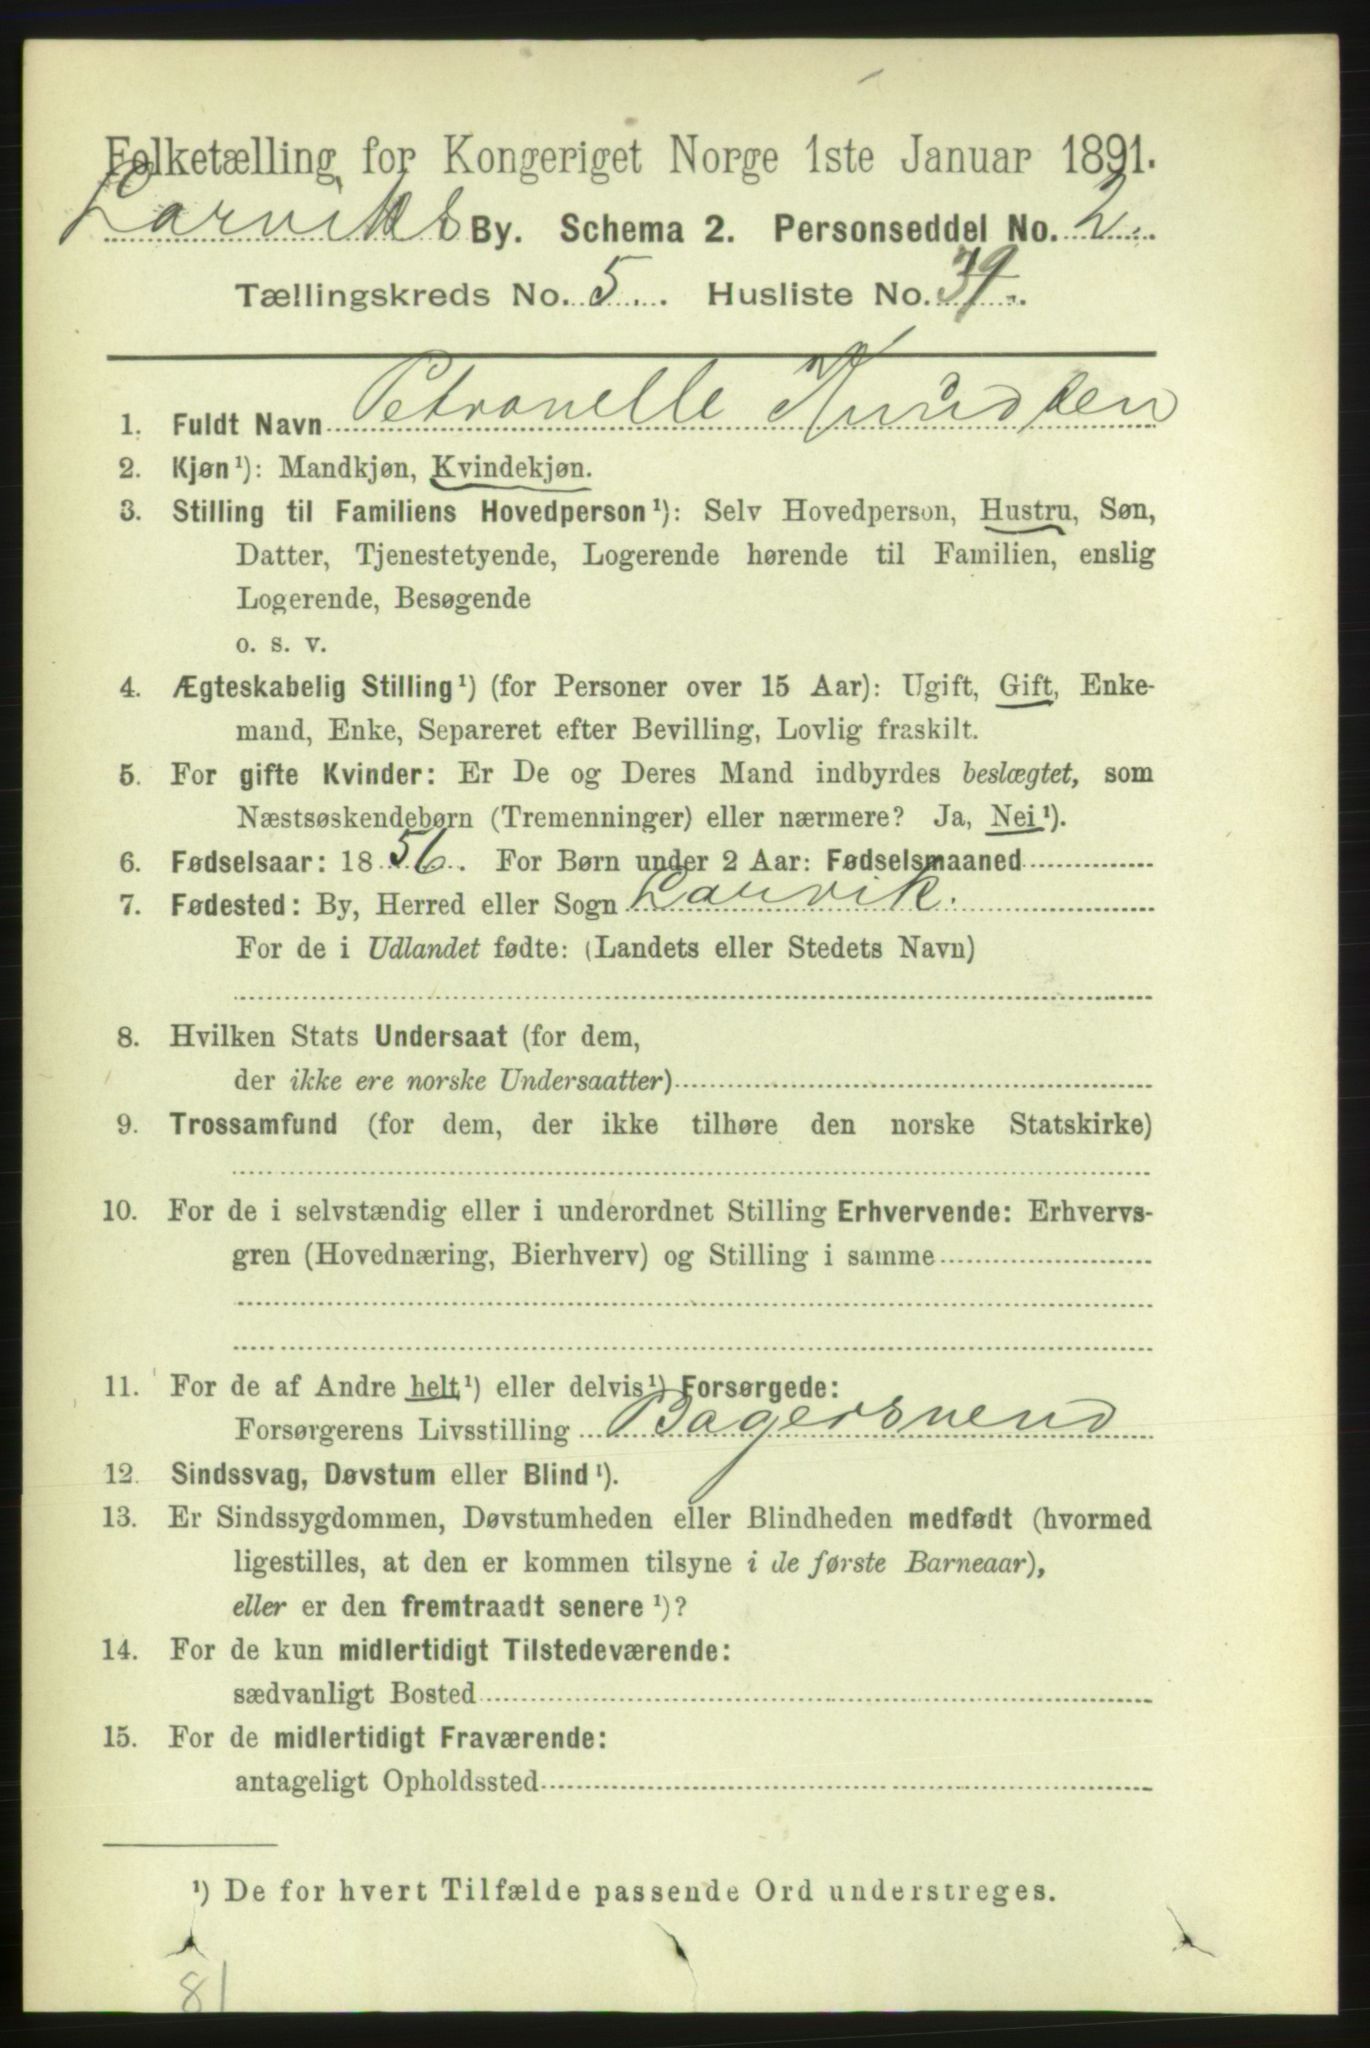 Folketælling for Kongeriget Norge 1ste Januar 1891.
Larviks By. Schema 2. Personseddel No. 2.
Tællingskreds No. 5. Husliste No. 39.
1. Fuldt Navn Petronelle Knudsen
2. Kjøn¹): Mandkjøn, Kvindekjøn.
3. Stilling til Familiens Hovedperson¹): Selv Hovedperson, Hustru, Søn,
Datter, Tjenestetyende, Logerende hørende til Familien, enslig
Logerende, Besøgende
o. s. v.
4. Ægteskabelig Stilling¹) (for Personer over 15 Aar): Ugift, Gift, Enke-
mand, Enke, Separeret efter Bevilling, Lovlig fraskilt.
5. For gifte Kvinder: Er De og Deres Mand indbyrdes beslægtet, som
Næstsøskendebørn (Tremenninger) eller nærmere? Ja, Nei¹).
6. Fødselsaar: 1856. For Børn under 2 Aar: Fødselsmaaned
7. Fødested: By, Herred eller Sogn Larvik.
For de i Udlandet fødte: (Landets eller Stedets Navn)
8. Hvilken Stats Undersaat (for dem,
der ikke ere norske Undersaatter)
9. Trossamfund (for dem, der ikke tilhøre den norske Statskirke)
10. For de i selvstændig eller i underordnet Stilling Erhvervende: Erhvervs-
gren (Hovednæring, Bierhverv) og Stilling i samme
11. For de af Andre helt¹) eller delvis¹) Forsørgede:
Forsørgerens Livsstilling Bagersvend
12. Sindssvag, Døvstum eller Blind¹).
13. Er Sindssygdommen, Døvstumheden eller Blindheden medfødt (hvormed
ligestilles, at den er kommen tilsyne i de første Barneaar),
eller er den fremtraadt senere¹)?
14. For de kun midlertidigt Tilstedeværende:
sædvanligt Bosted
15. For de midlertidigt Fraværende:
antageligt Opholdssted
¹) De for hvert Tilfælde passende Ord understreges.
81